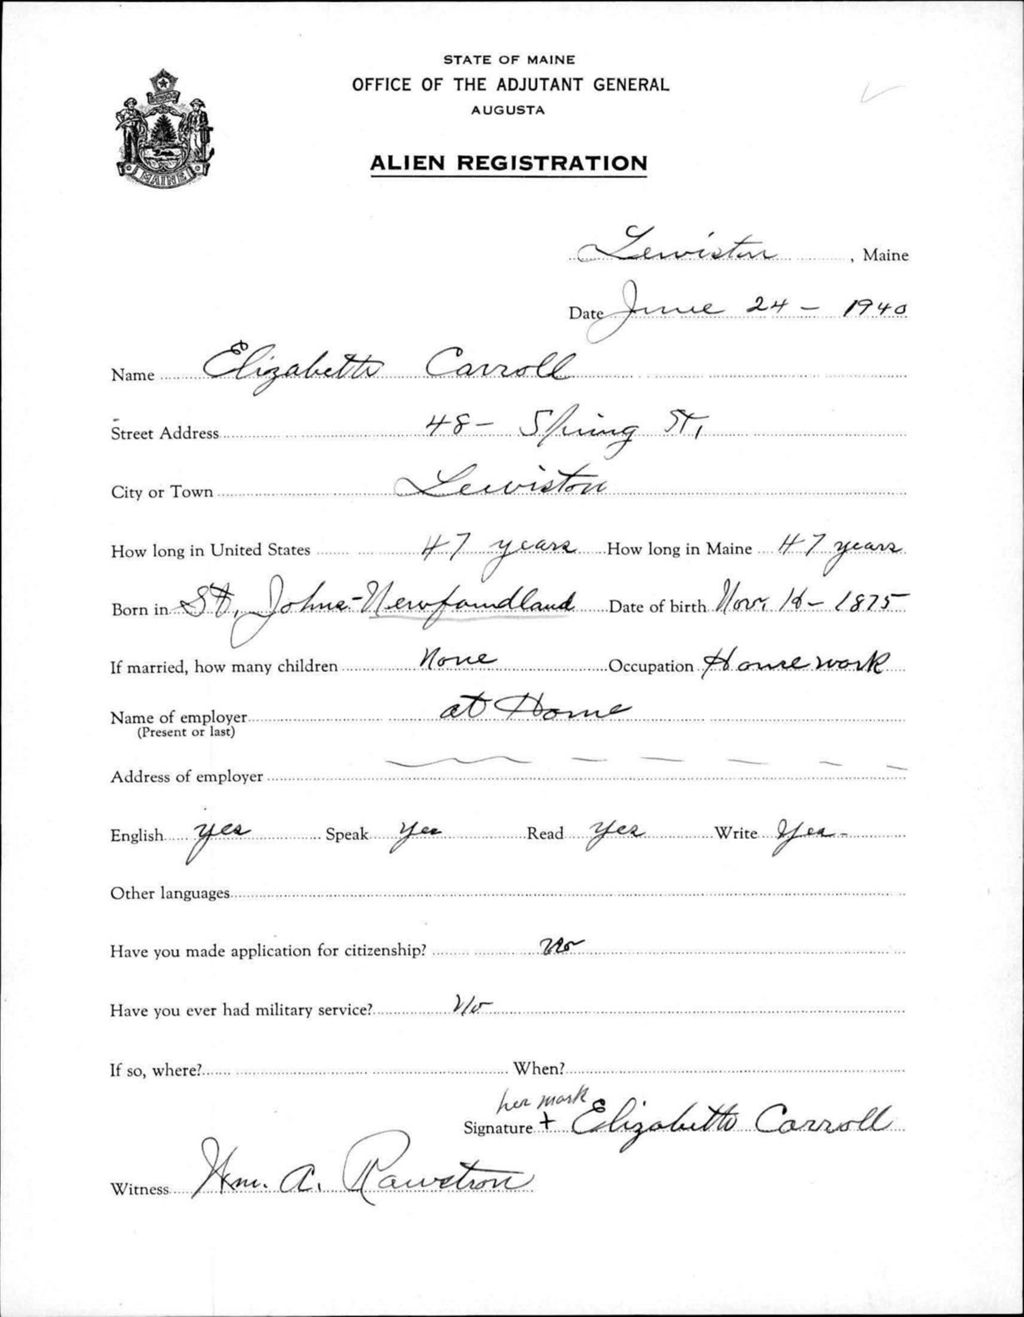 STATE OF MAINE
OFFICE OF THE ADJUTANT GENERAL
AUGUSTA
ALIEN REGISTRATION
Lewiston, Maine
Date June 24 - 1940
Name Elizabeth Carroll
Street Address 48 - Spring St,
City or Town Lewiston
How long in United States 47 years How long in Maine 47 years
Born in St, Johns - Newfoundland Date of birth Nov. - 1875
If married, how many children None Occupation Housework
Name of employer at Home
(Present or last)
Address of employer
English yes Speak yes Read yes Write Yes -
Other languages
Have you made application for citizenship? No
Have you ever had military service? No
If so, where? When?
her mark
Signature + Elizabeth Carroll
Witness Wm. A. Rawstron
MAINE